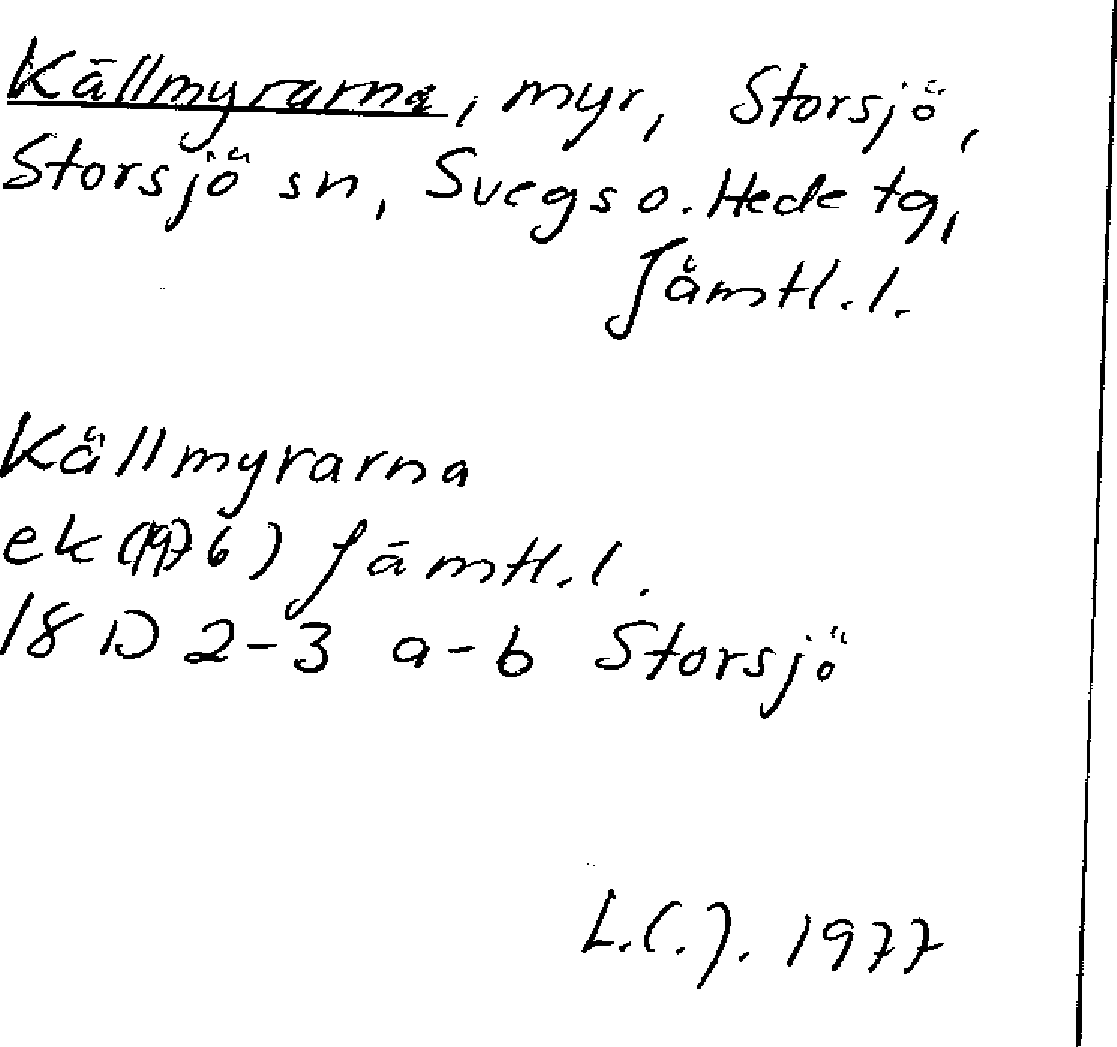 Källmyrarna, myr, Storsjö,
Storsjö sn, Svegs o. Hede tg,
Jämtl. l.
Källmyrarna
ek (1976) Jämtl. l.
18 D 2-3 a-b Storsjö
L.C.J. 1977